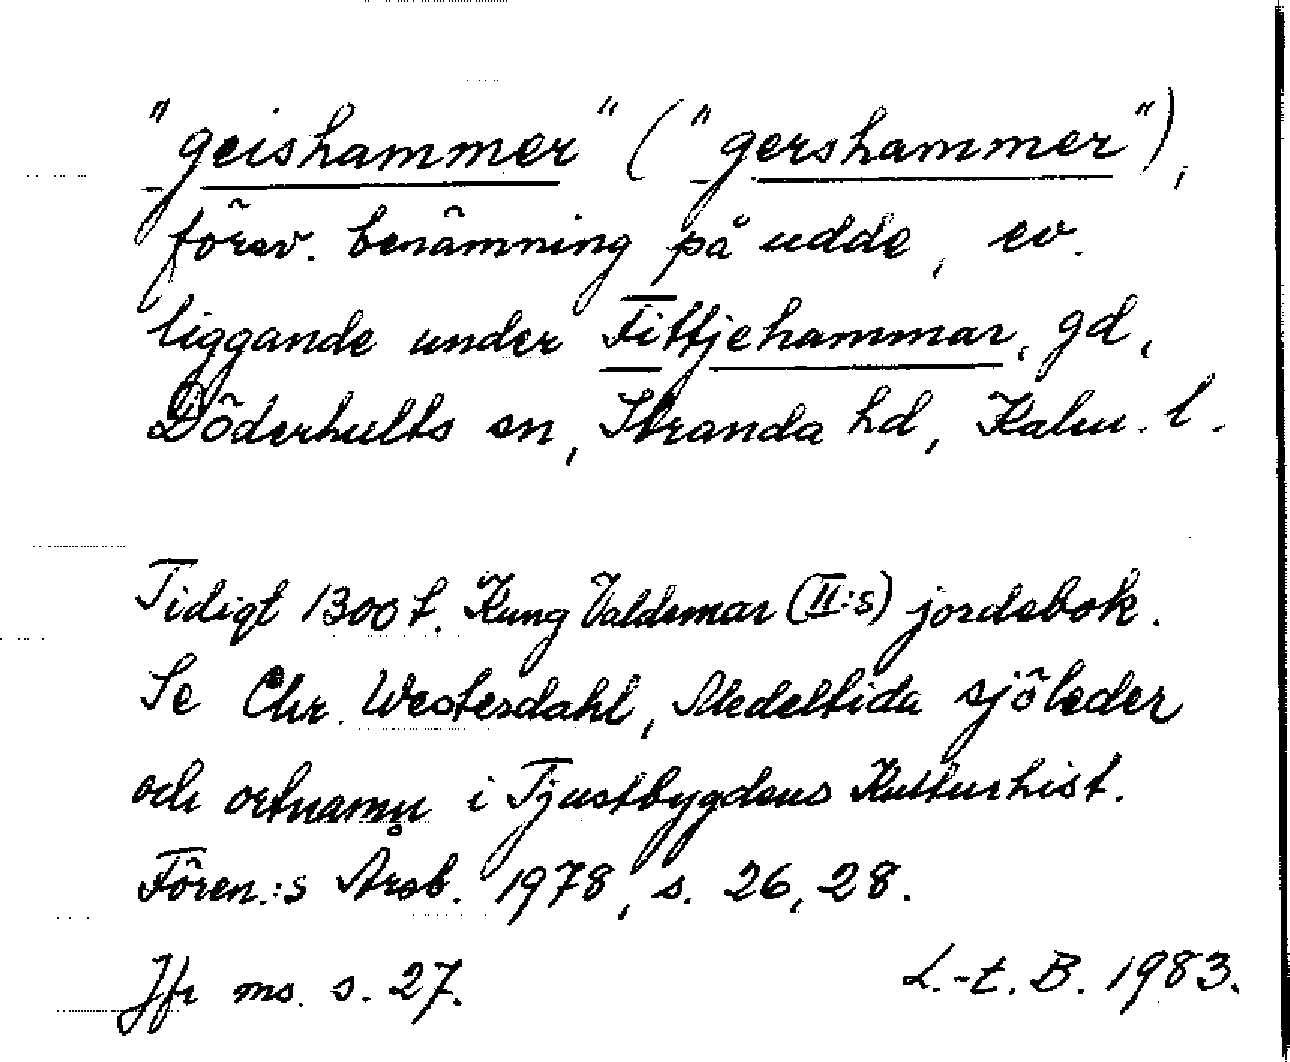 "geishammer" ("gershammer"),
försv. benämning på udde, ev.
liggande under Fittjehammar, gd,
Döderhults sn, Stranda hd, Kalm. l.
Tidigt 1300 t. Kung Valdemar (II:s) jordebok.
Se Chr. Westerdahl, Medeltida sjöleder
och ortnamn i Tjustbygdens Kulturhist.
Fören.:s Årsb. 1978, s. 26, 28.
Jfr ms. s. 27. L.-t. B. 1983.